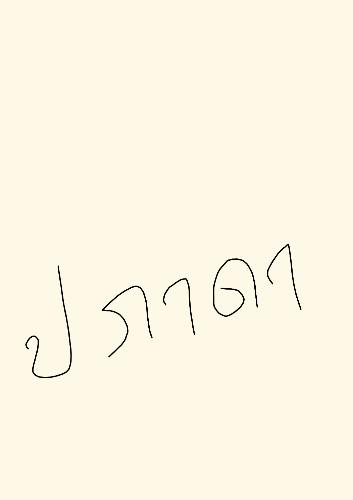 ปภาดา